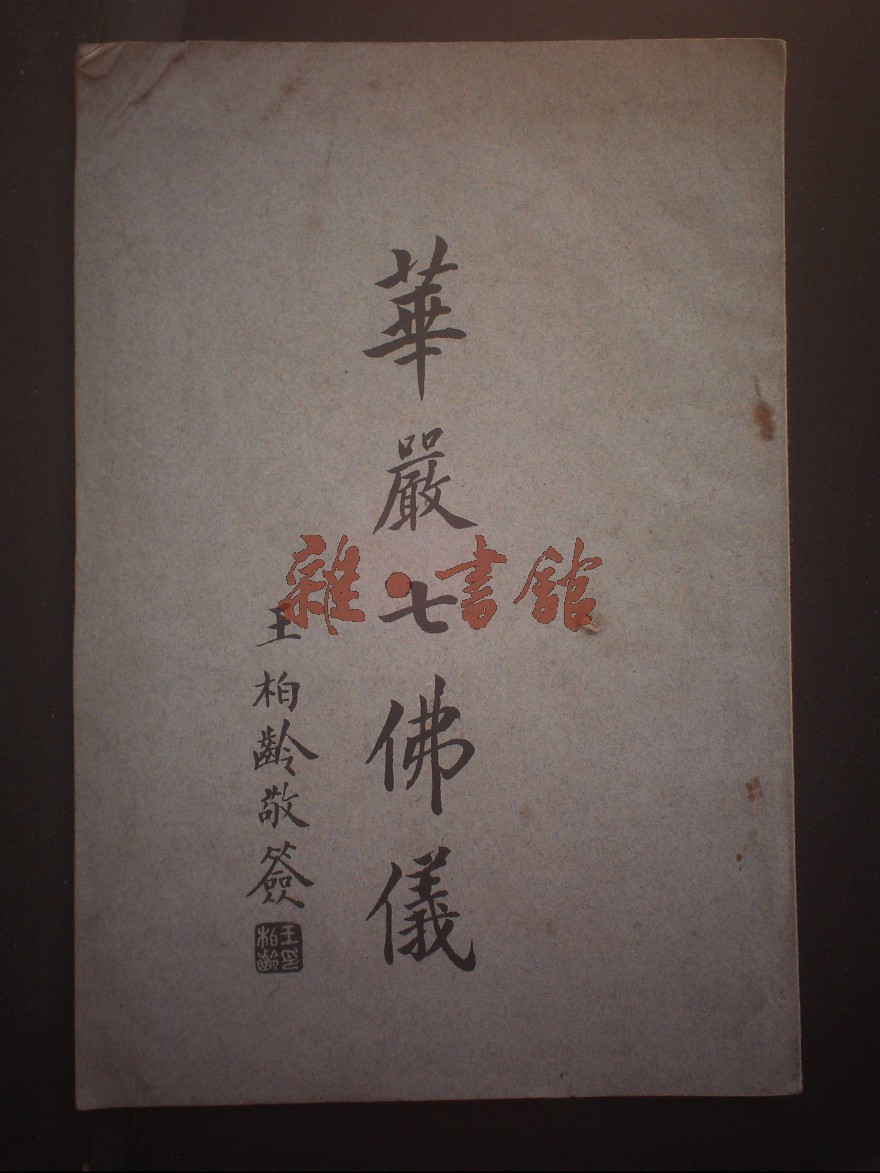 華嚴七佛儀
王柏齡敬簽
王印柏齡
雜·書館